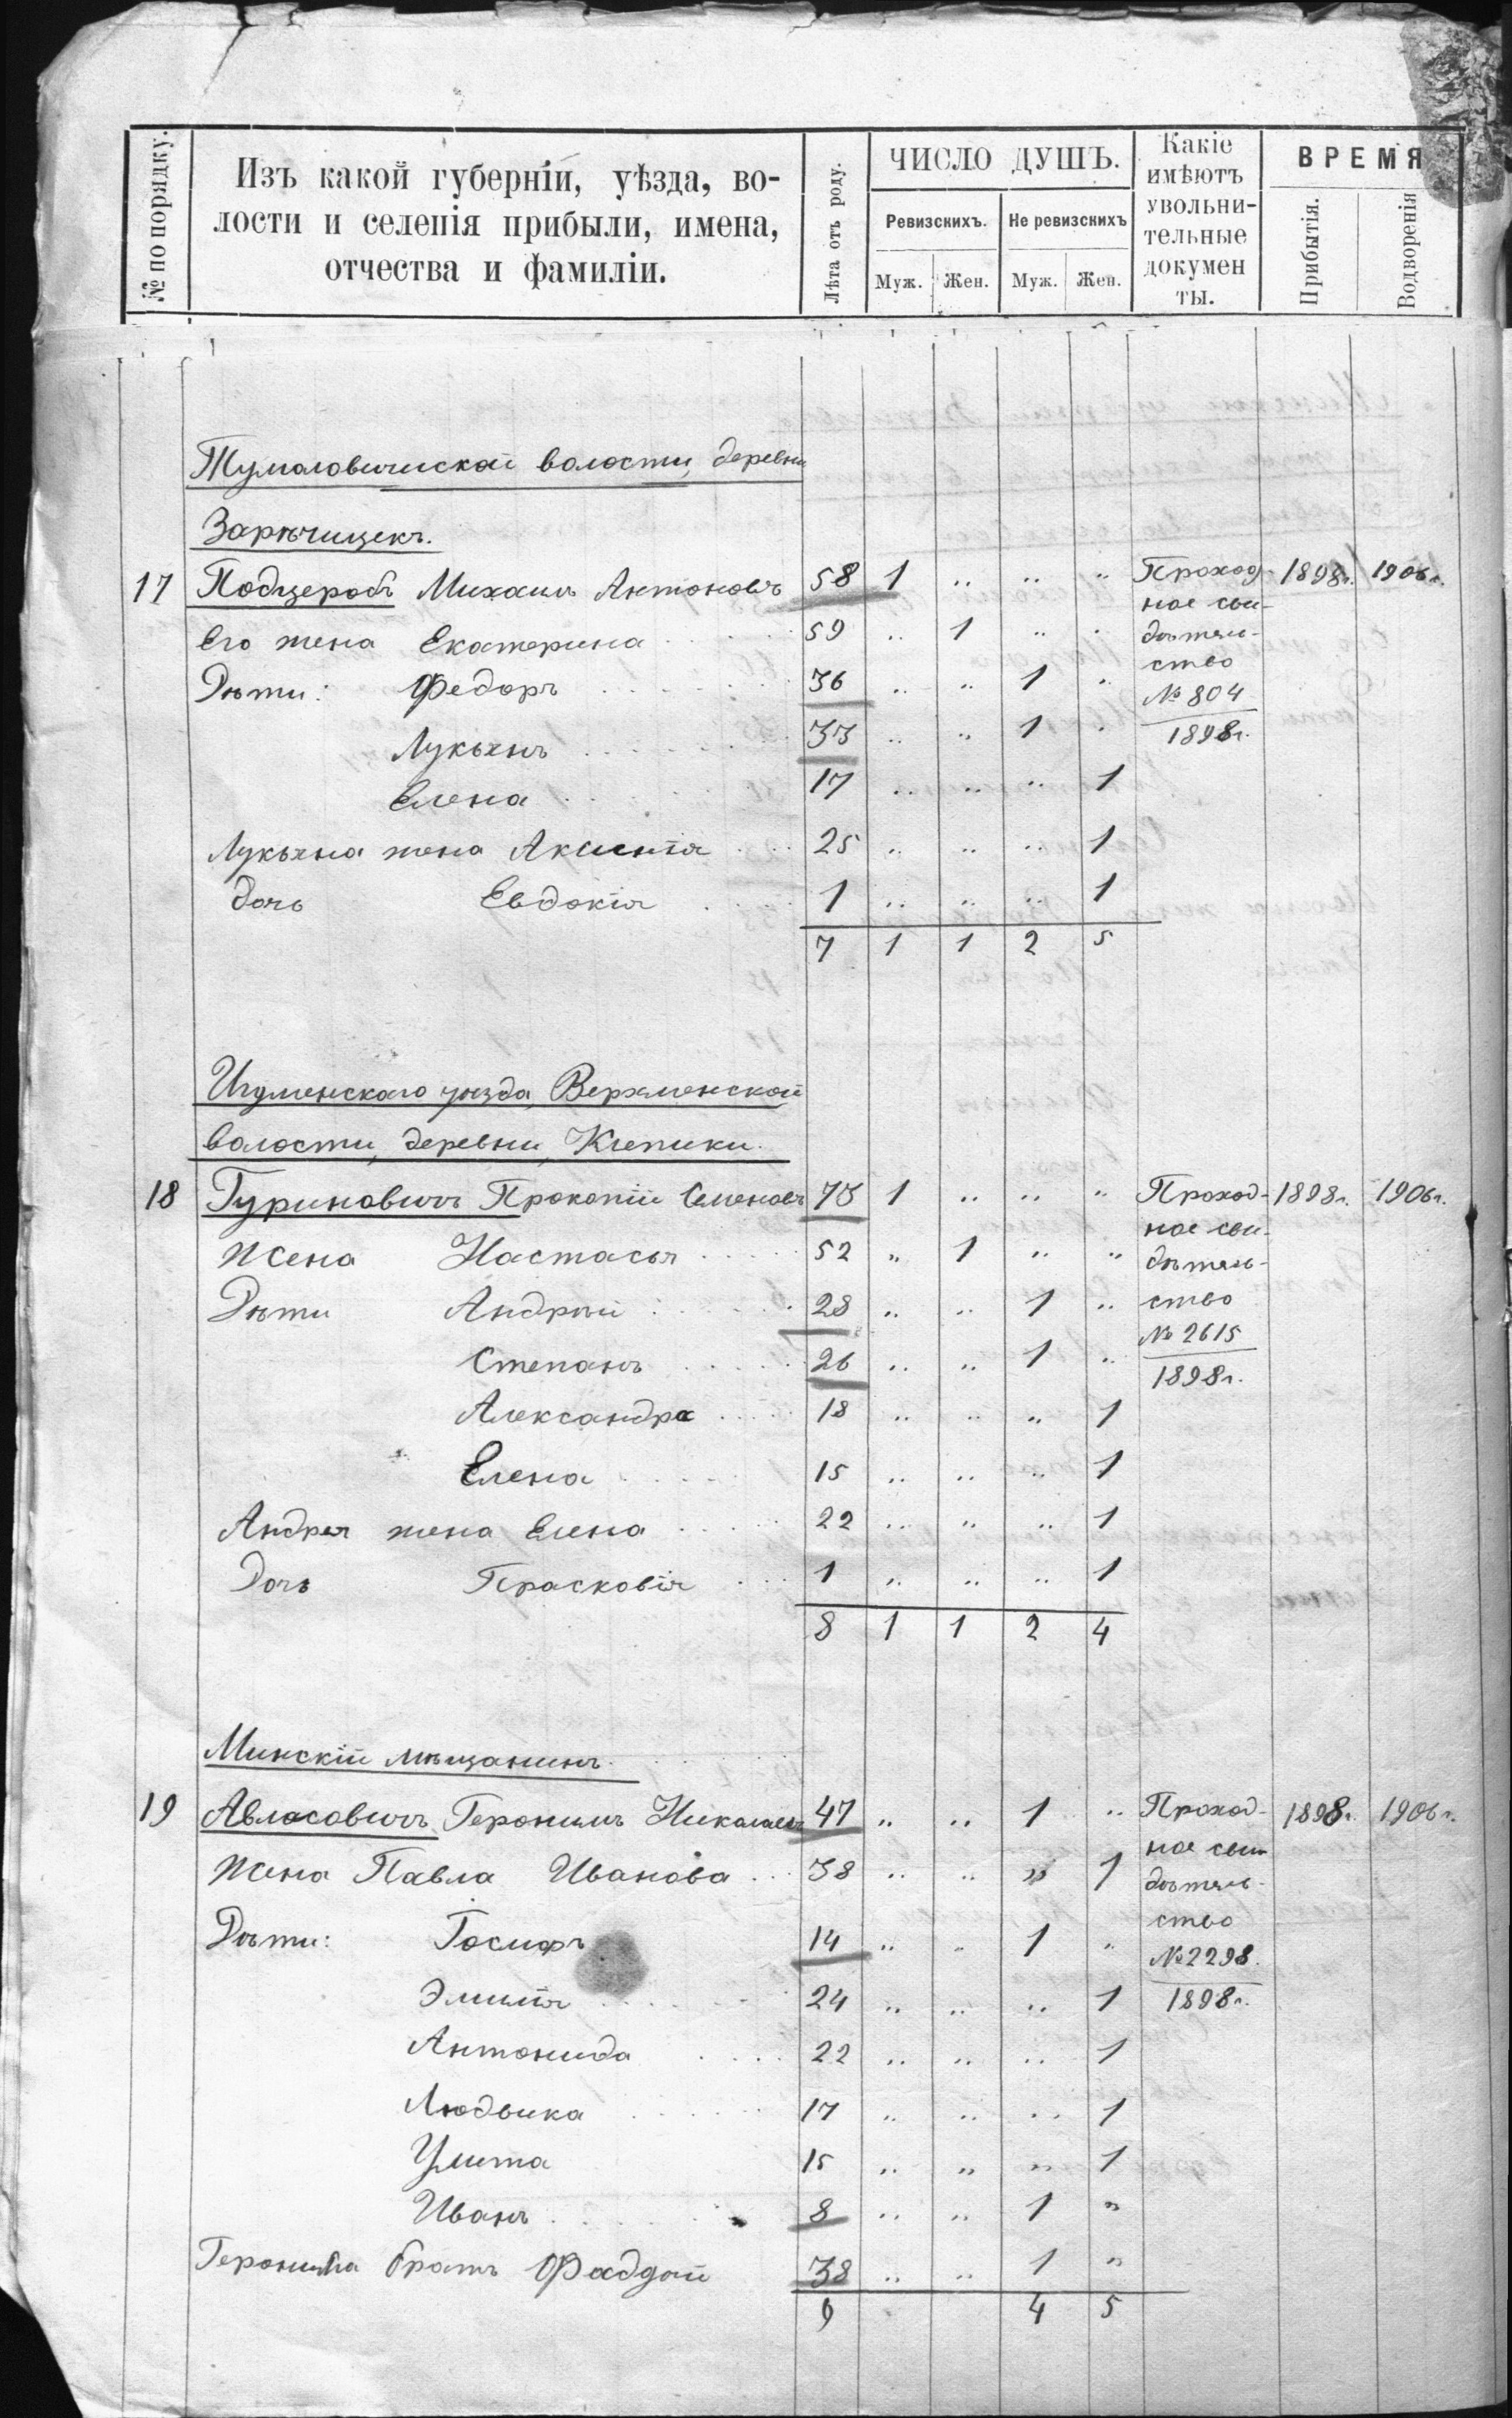 № по порядку.
Изъ какой губерніи, уѣзда, во-
лости и селенія прибыли, имена,
отчества и фамиліи.
Лѣта отъ роду.
ЧИСЛО ДУШЪ.
Ревизскихъ.
Не ревизскихъ
Муж. Жен. Муж. Жен.
Какіе
имѣютъ
увольни-
тельные
докумен
ты.
ВРЕМЯ
Прибытія.
Водворенія
Тумиловичиской волости, деревни
Зарѣчицекъ.
17 Подцеробъ Михаилъ Антоновъ 58 1 „ „ „ Проход- 1898г. 1906г.
ное сви-
Его жена Екатерина 59 „ 1 „ „ дѣтель-
ство
Дѣти: Федоръ 36 „ „ 1 „ № 804
Лукьянъ 33 „ „ 1 „ 1898г.
Елена 17 „ „ „ 1
Лукьяна жена Аксинія 25 „ „ „ 1
дочь Евдокія 1 „ „ „ 1
7 1 1 2 5
Игуменскаго уѣзда, Верхменской
волости, деревни, Клепики.
18 Гуриновичъ Прокопій Семеновъ 73 1 „ „ „ Проход- 1898г. 1906г.
ное сви-
Жена Настасья 52 „ 1 „ „ дѣтель-
Дѣти Андрѣй 28 „ „ 1 „ ство
№ 2615
Степанъ 26 „ „ 1 „ 1898г.
Александра 18 „ „ „ 1
Елена 15 „ „ „ 1
Андрея жена Елена 22 „ „ „ 1
Дочь Прасковія 1 „ „ „ 1
8 1 1 2 4
Минскій мѣщанинъ.
19 Авласовичъ Геронимъ Николаевъ 47 „ „ 1 „ Проход- 1898г. 1906г.
ное сви-
Жена Павла Иванова 38 „ „ „ 1 дѣтель-
ство
Дѣти: Іосифъ 14 „ „ 1 „ № 2298.
Эмилія 24 „ „ „ 1 1898г.
Антонида 22 „ „ „ 1
Людвика 17 „ „ „ 1
Улита 15 „ „ „ 1
Иванъ 8 „ „ 1 „
Геронима братъ Фаддей 38 „ „ 1 „
9 4 5